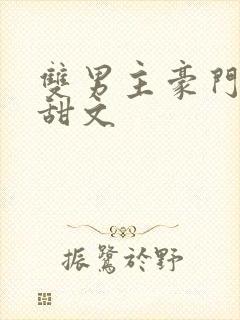 雙男主豪門
甜文
振鷺於野